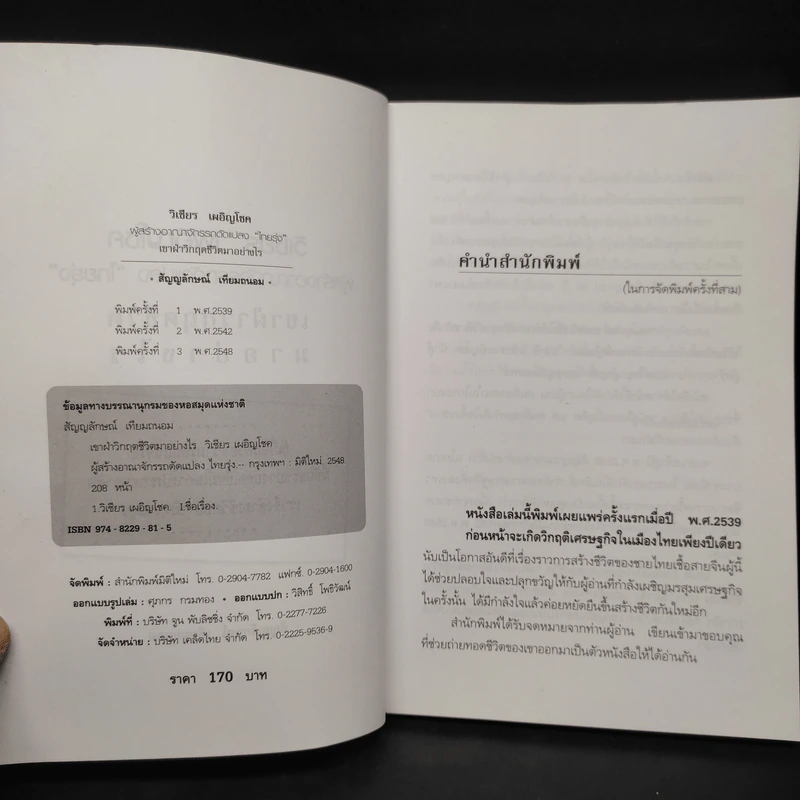 วิเชียร เผอิญโชค
ผู้สร้างอาณาจักรรถดัดแปลง "ไทยรุ่ง"
เขาฝ่าวิกฤตชีวิตมาอย่างไร
• สัญญลักษณ์ เทียมถนอม •
พิมพ์ครั้งที่ 1 พ.ศ.2539
พิมพ์ครั้งที่ 2 พ.ศ.2542
พิมพ์ครั้งที่ 3 พ.ศ.2548
ข้อมูลทางบรรณานุกรมของหอสมุดแห่งชาติ
สัญญลักษณ์ เทียมถนอม
เขาฝ่าวิกฤตชีวิตมาอย่างไร วิเชียร เผอิญโชค
ผู้สร้างอาณาจักรรถดัดแปลง ไทยรุ่ง.-- กรุงเทพฯ : มิติใหม่, 2548
208 หน้า
1.วิเชียร เผอิญโชค. I.ชื่อเรื่อง.
ISBN 974 - 8229 - 81 - 5
จัดพิมพ์ : สำนักพิมพ์มิติใหม่ โทร. 0-2904-7782 แฟกซ์. 0-2904-1600
ออกแบบรูปเล่ม : ศุภกร กรมทอง • ออกแบบปก : วิสิทธิ์ โพธิวัฒน์
พิมพ์ที่ : บริษัท จูน พับลิชชิ่ง จำกัด โทร. 0-2277-7226
จัดจำหน่าย : บริษัท เคล็ดไทย จำกัด โทร. 0-2225-9536-9
ราคา 170 บาท
คำนำสำนักพิมพ์
(ในการจัดพิมพ์ครั้งที่สาม)
หนังสือเล่มนี้พิมพ์เผยแพร่ครั้งแรกเมื่อปี พ.ศ.2539
ก่อนหน้าจะเกิดวิกฤติเศรษฐกิจในเมืองไทยเพียงปีเดียว
นับเป็นโอกาสอันดีที่เรื่องราวการสร้างชีวิตของชายไทยเชื้อสายจีนผู้นี้
ได้ช่วยปลอบใจและปลุกขวัญให้กับผู้อ่านที่กำลังเผชิญมรสุมเศรษฐกิจ
ในครั้งนั้น ได้มีกำลังใจแล้วค่อยหยัดยืนขึ้นสร้างชีวิตกันใหม่อีก
สำนักพิมพ์ได้รับจดหมายจากท่านผู้อ่าน เขียนเข้ามาขอบคุณ
ที่ช่วยถ่ายทอดชีวิตของเขาออกมาเป็นตัวหนังสือให้ได้อ่านกัน